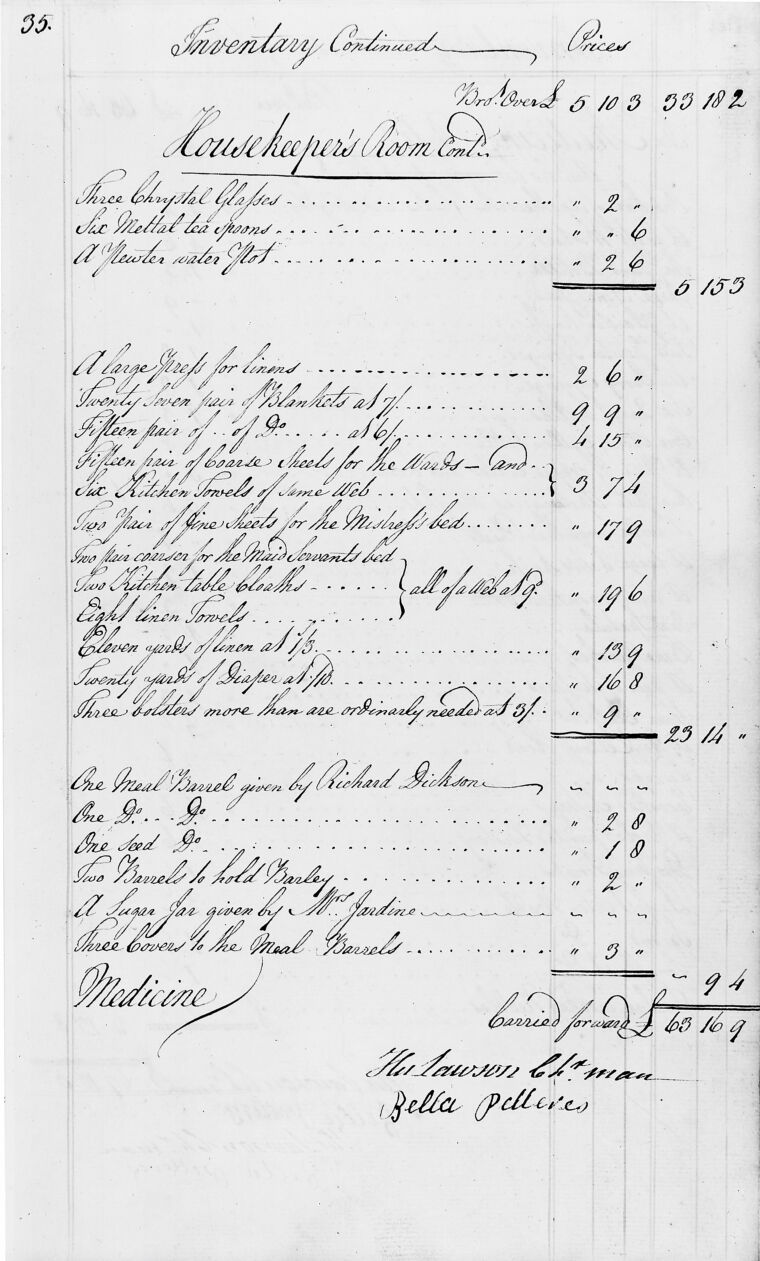 35.
Inventary Continued Prices
Bro.t Over £ 5 10 3 33 18 2
Housekeeper's Room Cont.d
Three Chrystal Glasses " 2 "
Six Mettal tea spoons " " 6
A Pewter water Pot " 2 6
5 15 3
A large Press for linens 2 6 "
Twenty Seven pair of Blankets at 7/. 9 9 "
Fifteen pair of .. of D.o at 6/. 4 15 "
Fifteen pair of Coarse Sheets for the Wards - and
Six Kitchen Towels of same Web } 3 7 4
Two Pair of fine Sheets for the Mistress's bed " 17 9
Two pair coarser for the Maid Servants bed
Two Kitchen table Cloaths } all of a Web at 9.d " 19 6
Eight linen Towels
Eleven yards of linen at 1/3 " 13 9
Twenty yards of Diaper at /10. " 16 8
Three bolsters more than are ordinarly needed at 3/. " 9 "
23 14 "
One Meal Barrel given by Richard Dickson " " "
One D.o D.o " 2 8
One seed D.o " 1 8
Two Barrels to hold Barley " 2 "
A Sugar Jar given by Mrs Jardine " " "
Three Covers to the Meal Barrels " 3 "
" 9 4
Medicine
Carried forward £ 63 16 9
Hu Lawson Ch.r man
Bella